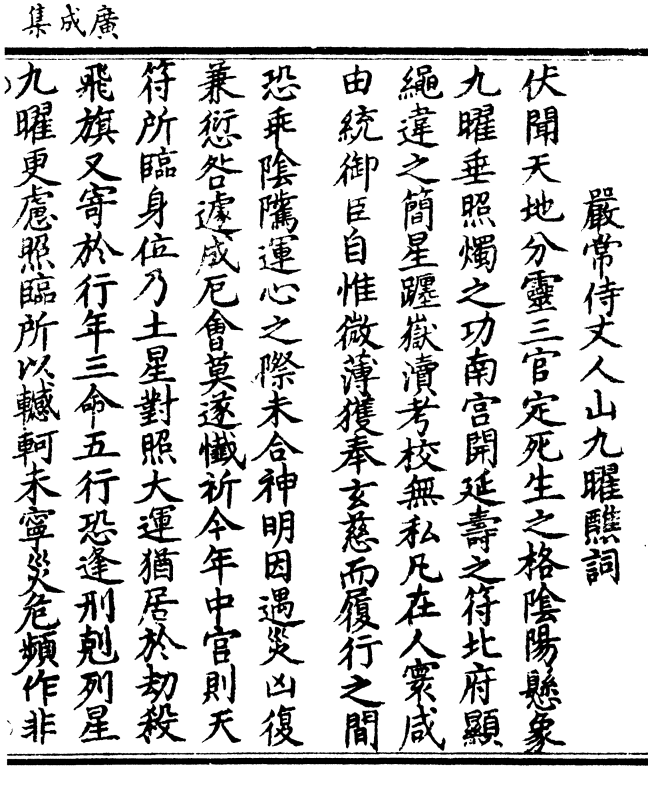 廣成集
嚴常侍丈人山九曜醮詞
伏聞天地分靈三官定死生之格陰陽懸象
九曜垂照燭之功南宮開延壽之符北府顯
繩違之簡星躔嶽瀆考校無私凡在人寰咸
由統御臣自惟微薄獲奉玄慈而履行之間
恐乖陰騭運心之際未合神明因遇災凶復
兼愆咎遽成厄會莫遂懺祈今年中宮則天
符所臨身位乃土星對照大運猶居於劫殺
飛旗又寄於行年三命五行恐逢刑剋列星
九曜更慮照臨所以轗軻未寧災危頻作非